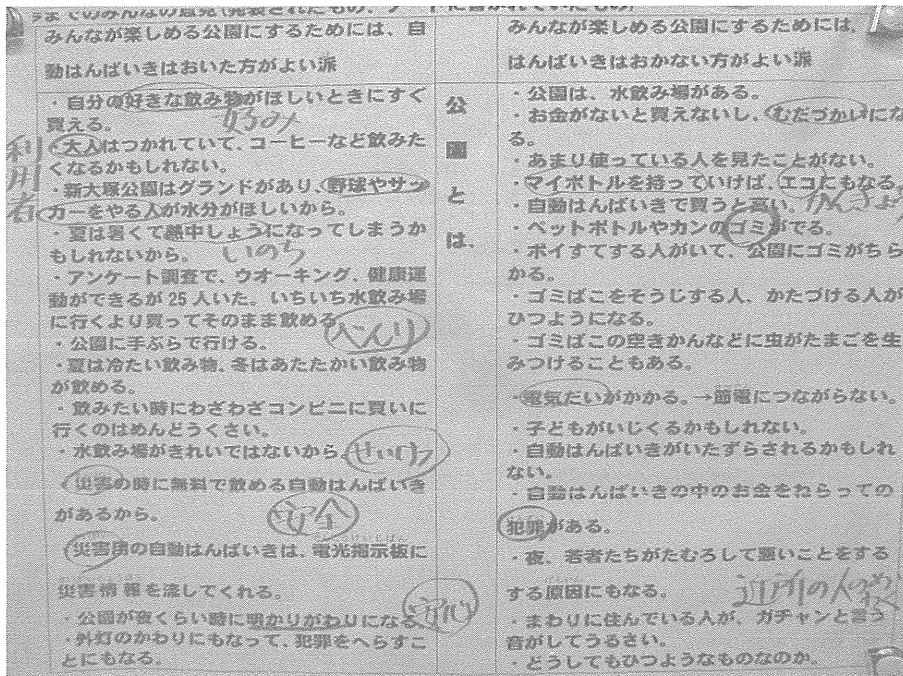 までのみんなの意見(発表されたもの、ノートに書かれていたもの)
みんなが楽しめる公園にするためには、自
動はんばいきはおいた方がよい派
・自分の好きな飲み物がほしいときにすぐ
買える。
好み
利用者
・大人はつかれていて、コーヒーなど飲みた
くなるかもしれない。
・新大塚公園はグランドがあり、野球やサッ
カーをやる人が水分がほしいから。
・夏は暑くて熱中しょうになってしまうか
もしれないから。
いのち
・アンケート調査で、ウオーキング、健康運
動ができるが25人いた。いちいち水飲み場
に行くより買ってそのまま飲める。
べんり
・公園に手ぶらで行ける。
・夏は冷たい飲み物、冬はあたたかい飲み物
が飲める。
・飲みたい時にわざわざコンビニに買いに
行くのはめんどうくさい。
・水飲み場がきれいではないから
せいけつ
・災害の時に無料で飲める自動はんばいき
があるから。
安全
・災害用の自動はんばいきは、電光掲示板に
災害情報を流してくれる。
・公園が夜くらい時に明かりがわりになる。
安心
・外灯のかわりにもなって、犯罪をへらすこ
とにもなる。
公園とは、
みんなが楽しめる公園にするためには、
はんばいきはおかない方がよい派
・公園は、水飲み場がある。
・お金がないと買えないし、むだづかいにな
る。
・あまり使っている人を見たことがない。
・マイボトルを持っていけば、エコにもなる。
・自動はんばいきで買うと高い。
かんきょう
・ペットボトルやカンのゴミがでる。
・ポイすてする人がいて、公園にゴミがちら
かる。
・ゴミばこをそうじする人、かたづける人が
ひつようになる。
・ゴミばこの空きかんなどに虫がたまごを生
みつけることもある。
・電気だいがかかる。→節電につながらない。
・子どもがいじくるかもしれない。
・自動はんばいきがいたずらされるかもしれ
ない。
・自動はんばいきの中のお金をねらっての
犯罪がある。
・夜、若者たちがたむろして悪いことをする
する原因にもなる。
近所の人の
・まわりに住んでいる人が、ガチャンと言う
音がしてうるさい。
・どうしてもひつようなものなのか。